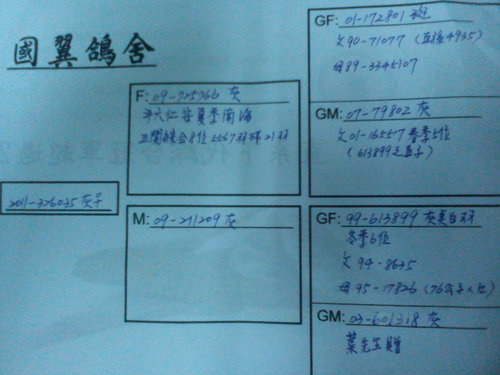 國翼鴿舍
2011-326035 灰子
F: 09-725766 灰
平八仁安夏季南海
五關綜合8位 5567羽 21羽
M: 09-211209 灰
GF: 01-172801 斑
父90-71077 (直孫4935)
母89-3345107
GM: 07-79802 灰
父01-165517 春季5位
(613899之直子)
GF: 99-613899 灰真白羽
冬季6位
父 94-8635
母 95-17826
GM: 03-601318 灰
葉先生贈